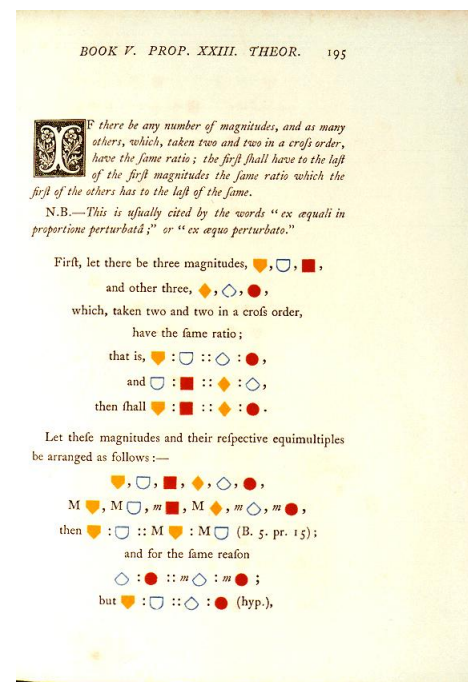 BOOK V. PROP. XXIII. THEOR. 195
IF there be any number of magnitudes, and as many
others, which, taken two and two in a croſs order,
have the ſame ratio; the firſt ſhall have to the laſt
of the firſt magnitudes the ſame ratio which the
firſt of the others has to the laſt of the ſame.
N.B.—This is uſually cited by the words “ ex æquali in
proportione perturbatâ ;” or “ ex æquo perturbato.”
Firſt, let there be three magnitudes, , , ,
and other three, , , ,
which, taken two and two in a croſs order,
have the ſame ratio;
that is, : :: : ,
and : :: : ,
then ſhall : :: : .
Let theſe magnitudes and their reſpective equimultiples
be arranged as follows :—
, , , , , ,
M , M , m , M , m , m ,
then : :: M : M (B. 5. pr. 15);
and for the ſame reaſon
: :: m : m ;
but : :: : (hyp.),